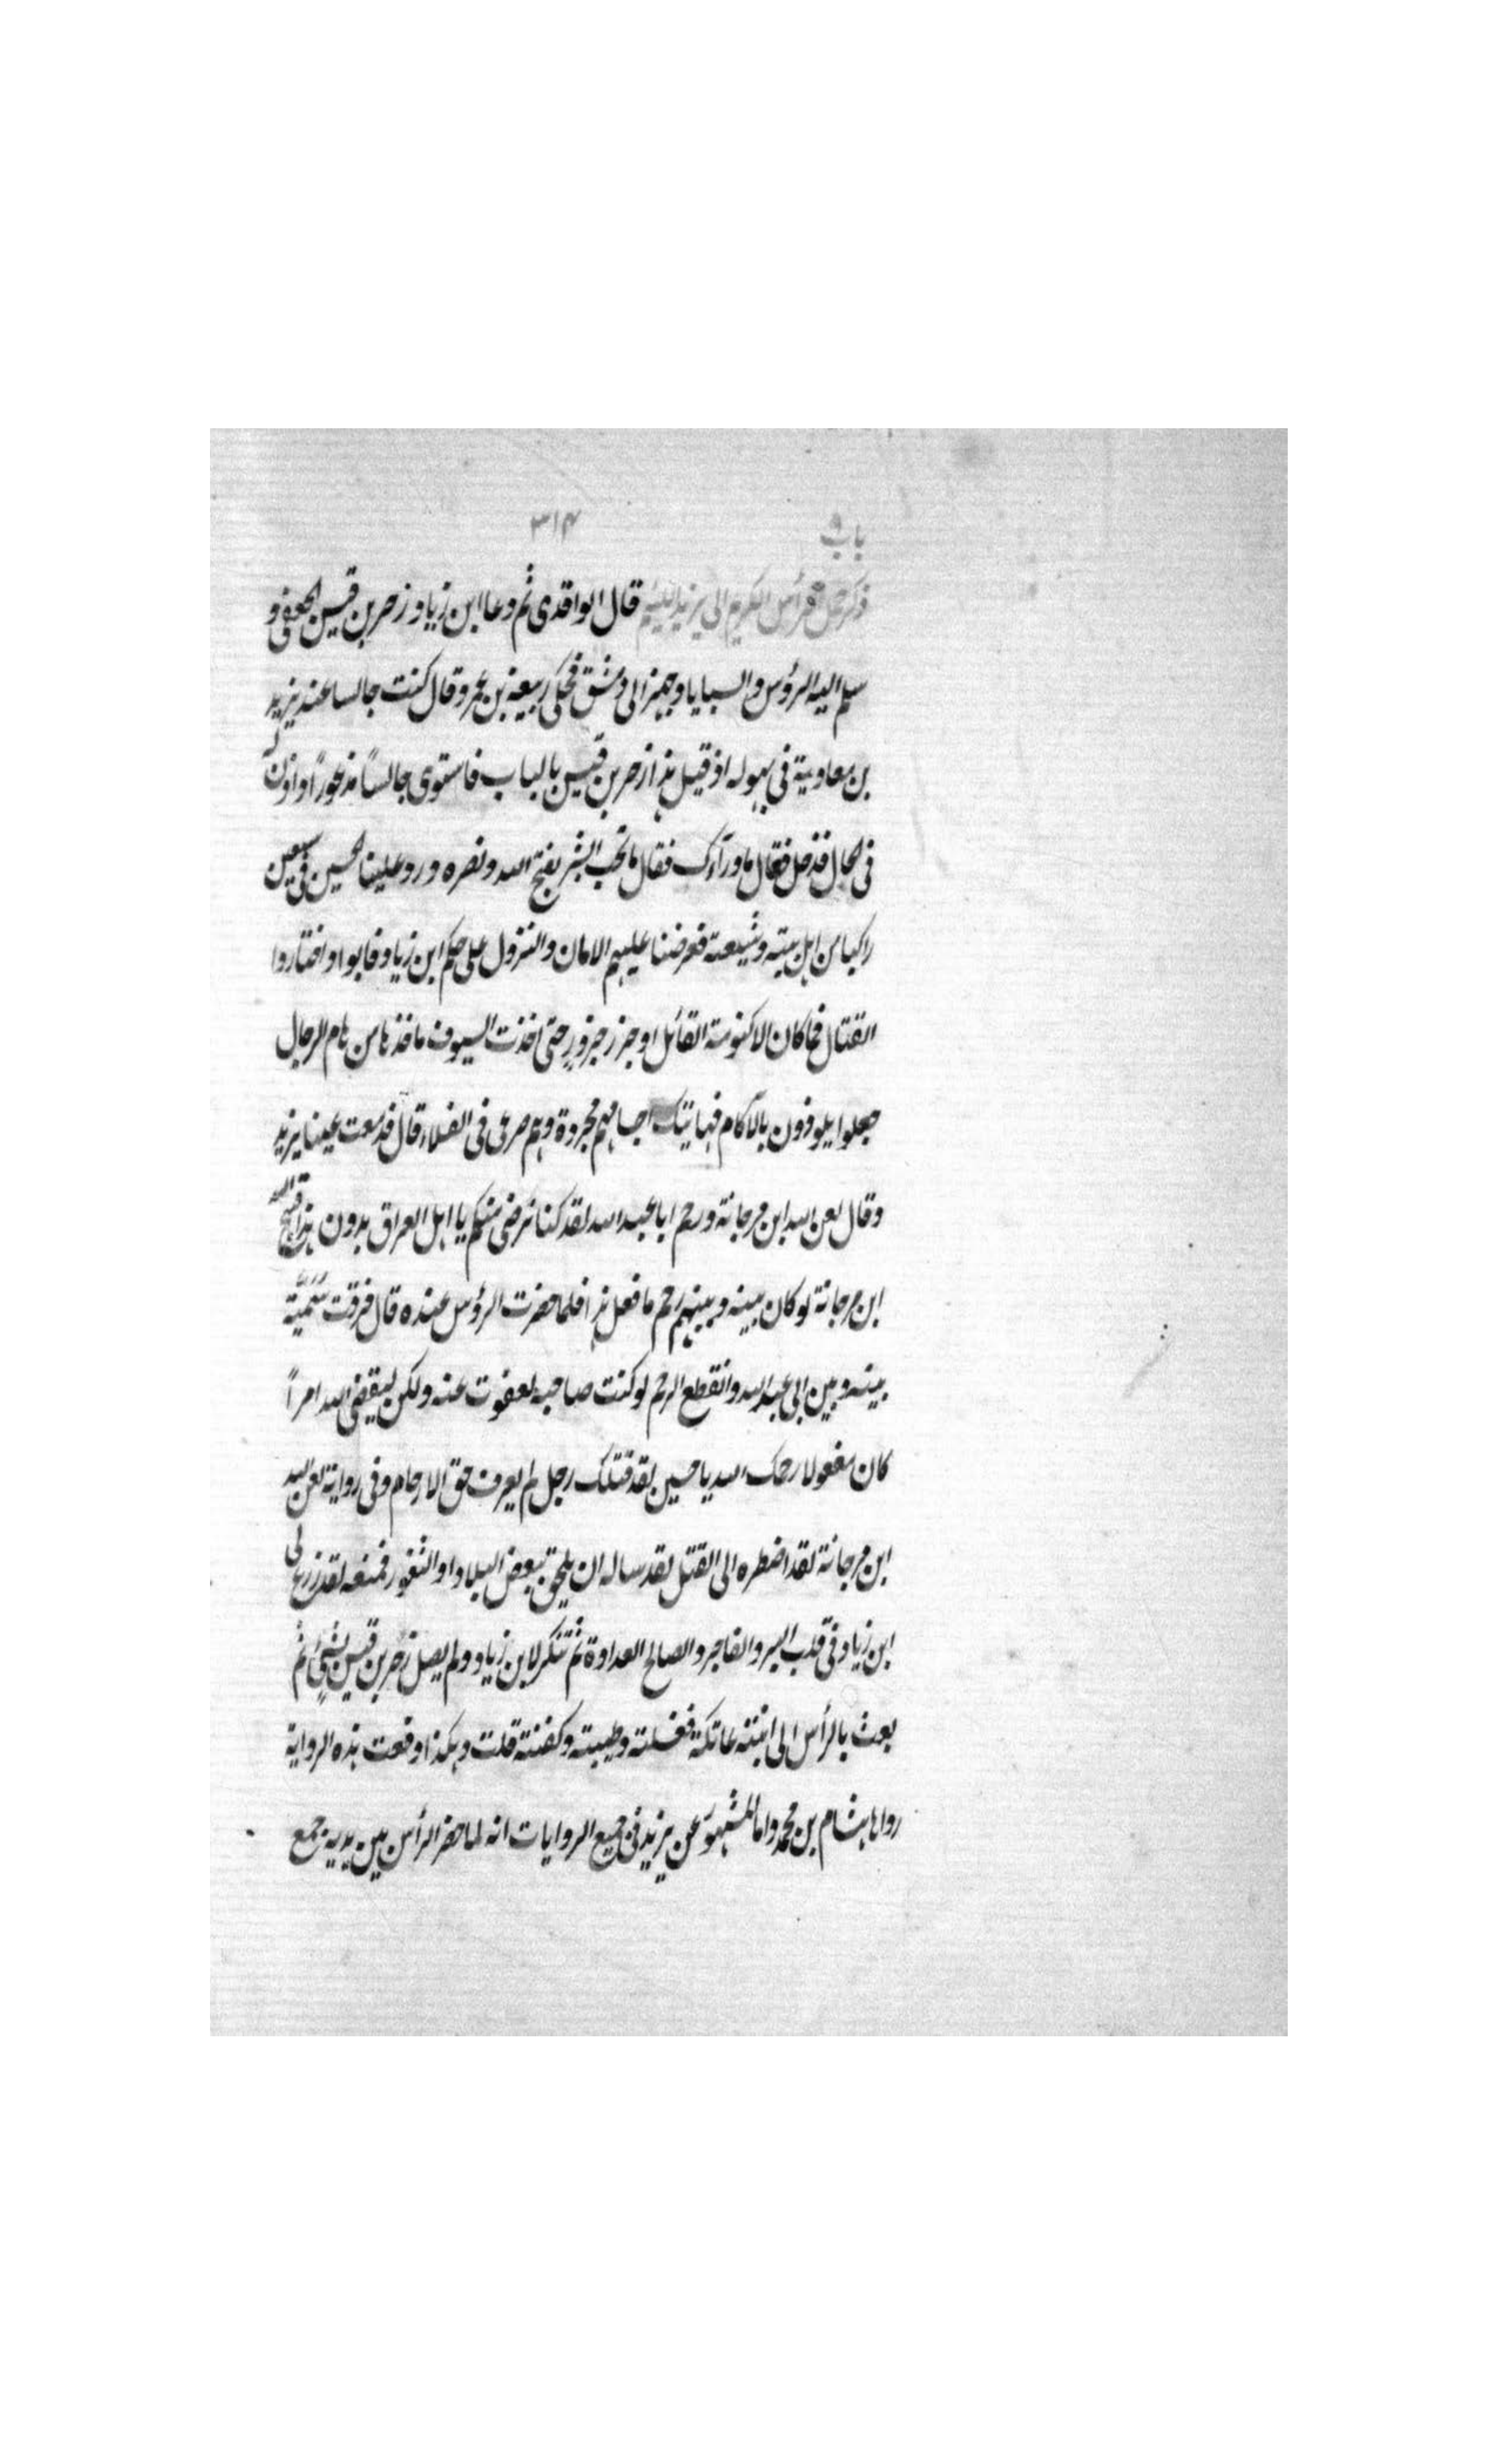 باب ٩
٣١٤
ذكر حمل الرأس الكريم الى يزيد اللئيم قال الواقدى ثم دعا ابن زياد زحر بن قيس الجعفى و
سلم اليه الرؤس والسبايا وجهزه الى دمشق فحكى ربيعة بن عمرو قال كنت جالسا عند يزيد
بن معاوية فى بهوله اذ قيل هذا زحر بن قيس بالباب فاستوى جالساً مذعوراً واذن له
فى الحال فدخل فقال ما ورآءك فقال ما تحب ابشر بفتح الله ونصره ورد علينا الحسين فى سبعين
راكبا من اهل بيته وشيعته فعرضنا عليهم الامان والنزول على حكم ابن زياد فابوا واختاروا
القتال فما كان الا كنومة القائل او جزر جزور حتى اخذت السيوف ماخذها من هام الرجال
جعلوا يلوذون بالآكام فهاتيك اجسامهم مجردة وهم صرعى فى الفلاء قال فدمعت عينا يزيد
وقال لعن الله ابن مرجانة ورحم ابا عبد الله لقد كنا نرضى منكم يا اهل العراق بدون هذا قبح الله
ابن مرجانة لو كان بينه وبينهم رحم ما فعل هذا فلما حضرت الرؤس عنده قال فرقت سمية
بينه وبين ابى عبد الله وانقطع الرحم لو كنت صاحبه لعفوت عنه ولكن ليقضى الله امراً
كان مفعولا رحمك الله يا حسين لقد قتلك رجل لم يعرف حق الارحام وفى رواية لعن الله
ابن مرجانة لقد اضطره الى القتل لقد ساله ان يلحق ببعض البلاد او الثغور فمنعه لقد زرع لى
ابن زياد فى قلب البر والفاجر والصالح العداوة ثم تنكر لابن زياد ولم يصل زحر بن قيس بشئ ثم
بعث بالرأس الى ابنته عاتكة فغسلته وطيبته وكفنته قلت وهكذا وقعت هذه الرواية
رواها هشام بن محمد واما المشهور عن يزيد فى جميع الروايات انه لما حضر الرأس بين يديه جمع